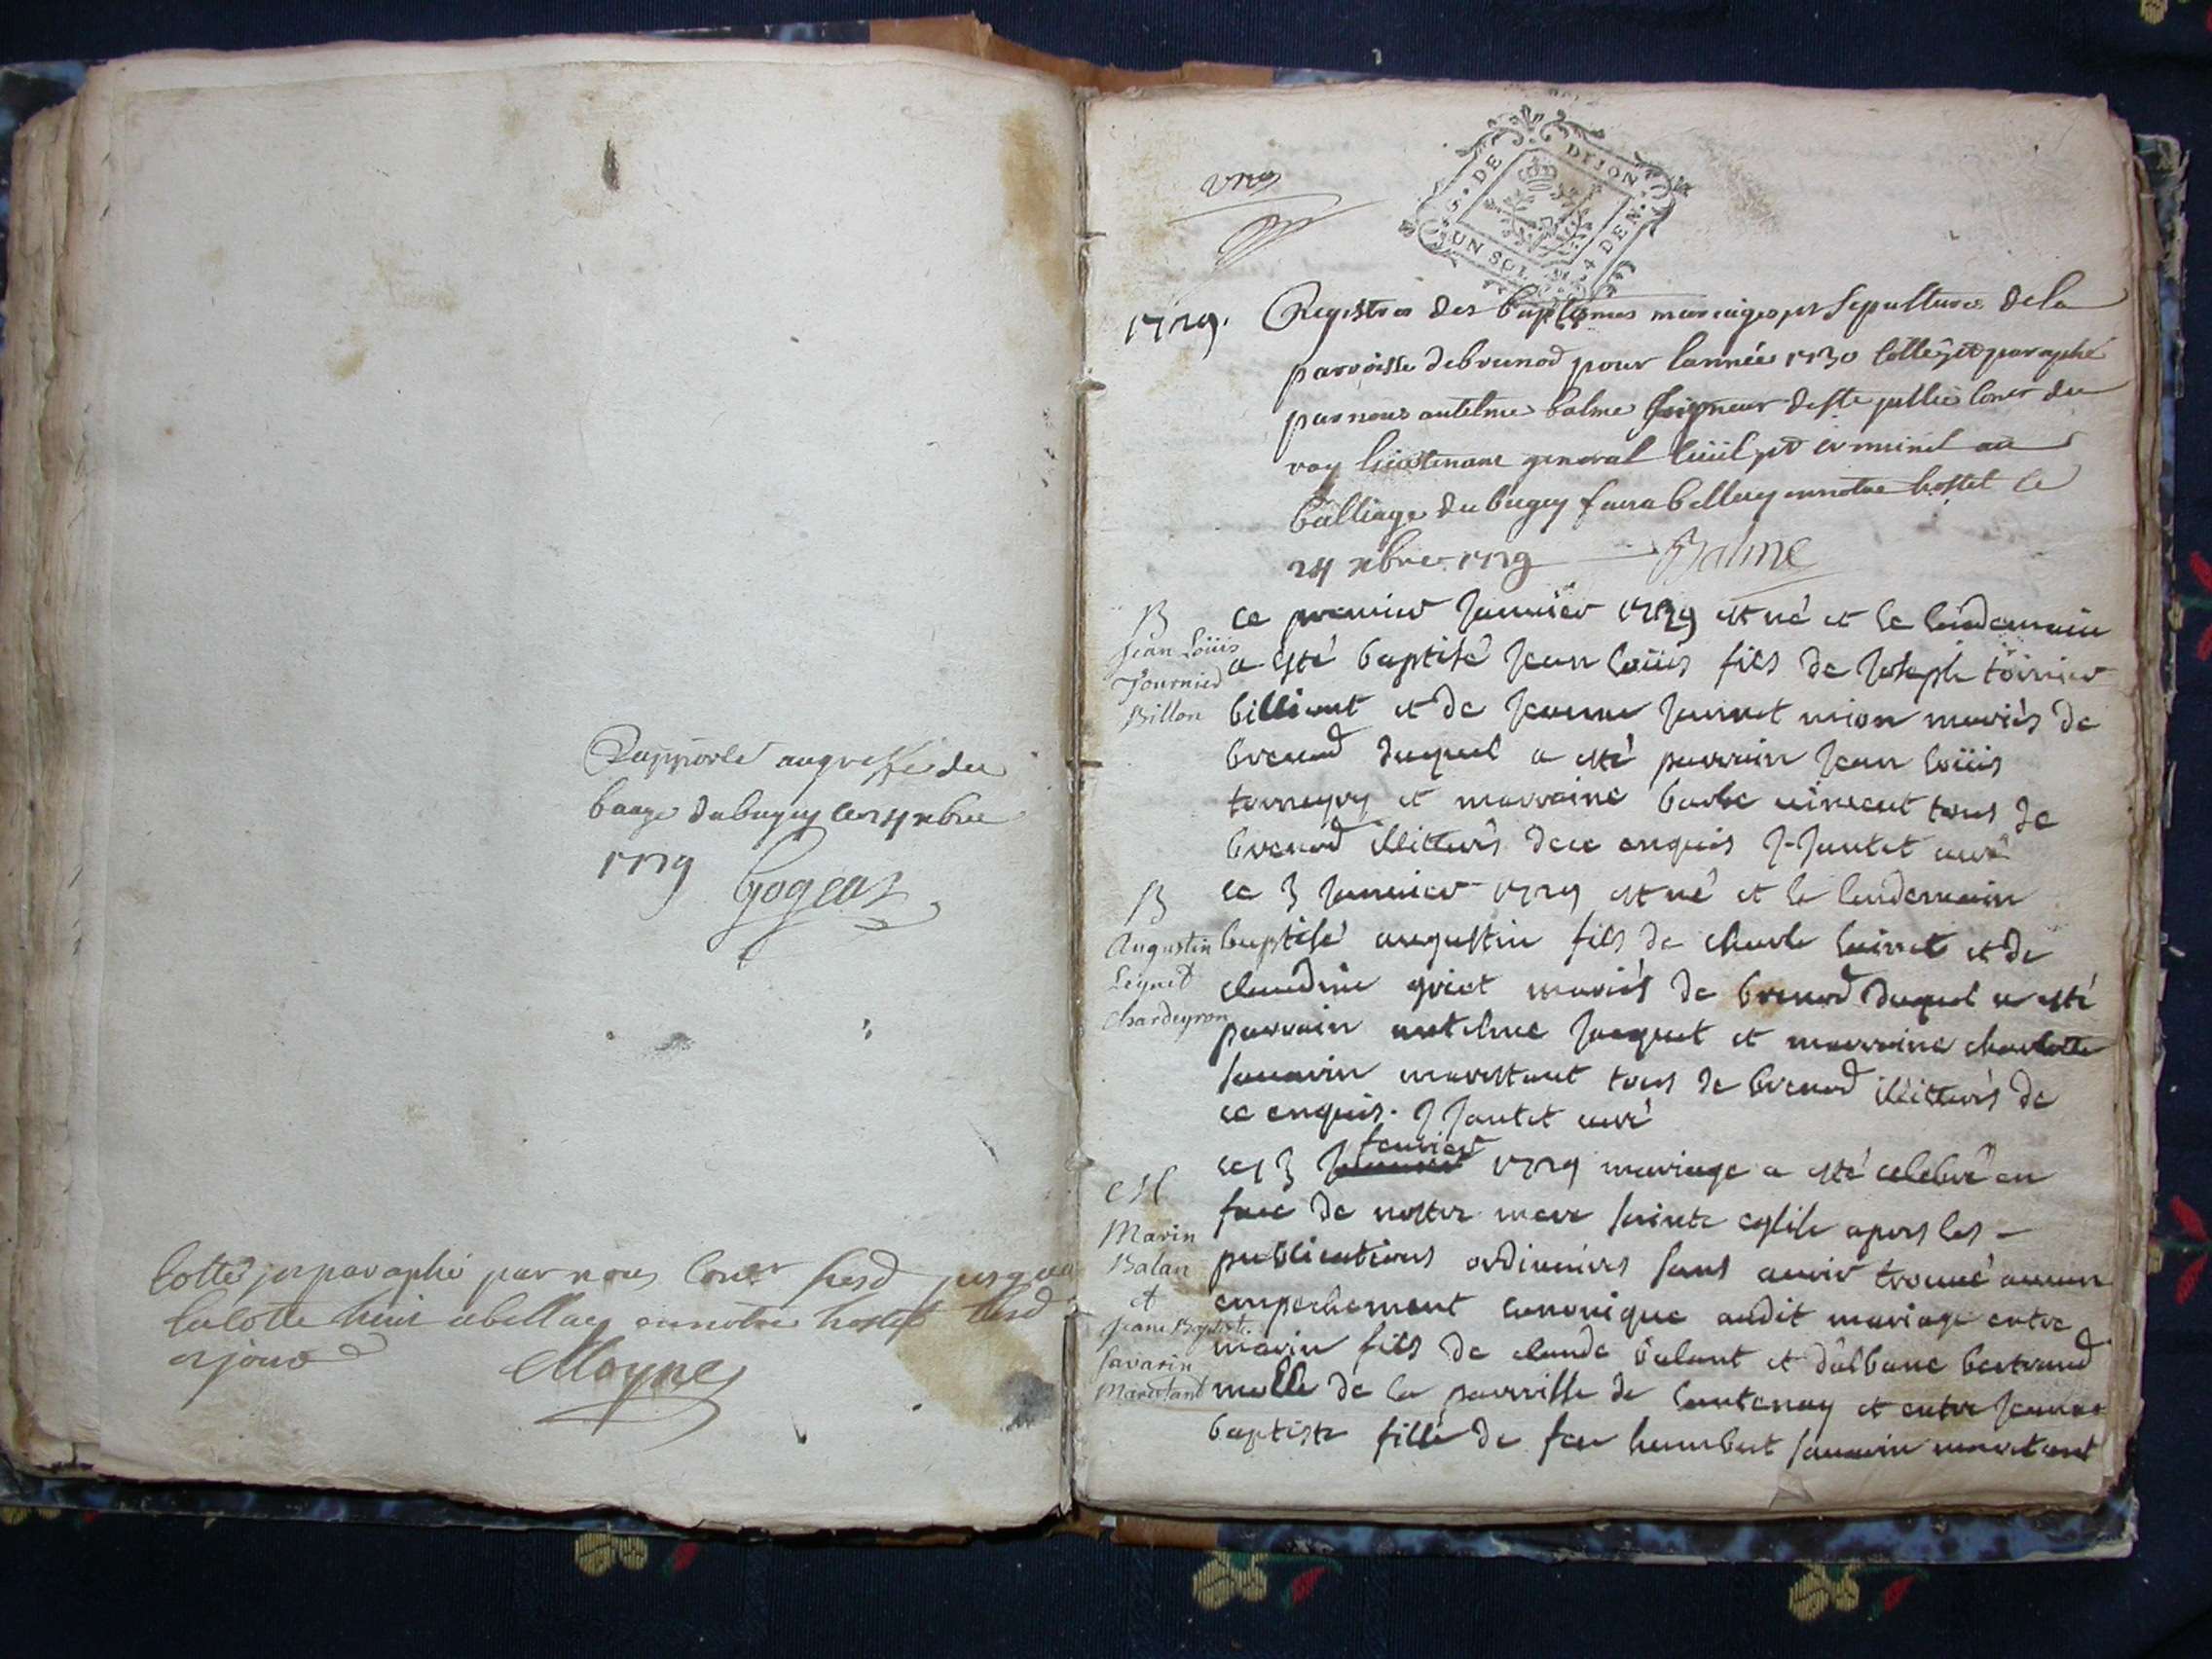 Rapporté au greffe du
baage du bugey le 24 xbre
1729 Gogeat
Cotté et paraphé par nous Coner susd jusques
la cotte huit a bellay en notre hostel lesd
et jour Moyne
S. DE DIJON
UN SOL 4 DEN.
une
1729. Registres des baptemes mariages et sepultures de la
parroisse de brenod pour l'année 1730 cotté et paraphé
par nous antelme balme seigneur de ste jullie coner du
roy lieutenant general civil et criminel au
balliage du bugey fait a belley en notre hostel le
24 xbre 1729 Balme
B
Jean Loüis
Tournier
Billon
ce premier Janvier 1729 est né et le lendemain
a esté baptisé Jean loüis fils de Joseph tornier
billiont et de Jeanne Jannet mariés de
brenod duquel a esté parrain Jean loüis
et marraine barbe vincent tous de
brenod illiterés de ce enquis J. Jantet curé
B
Augustin
Leynet
Chardeyron
ce 3 Janvier 1729 est né et le lendemain
baptisé augustin fils de charle et de
claudine mariés de brenod duquel a esté
parrain antelme Jacquet et marraine charlotte
savarin marestant tous de brenod illiterés de
ce enquis. J Jantet curé
M
Marin
Balan
et
Jeane Baptiste
Savarin
Marestant
ce 13 fevrier 1729 mariage a esté celebré en
face de nostre mere sainte eglise apres les
publications ordinaires sans avoir trouvé aucun
empechement canonique audit mariage entre
marin fils de claude balant et d'albane bertrand
molle de la parroisse de lantenay et entre Jeanne
baptiste fille de feu humbert savarin marestant